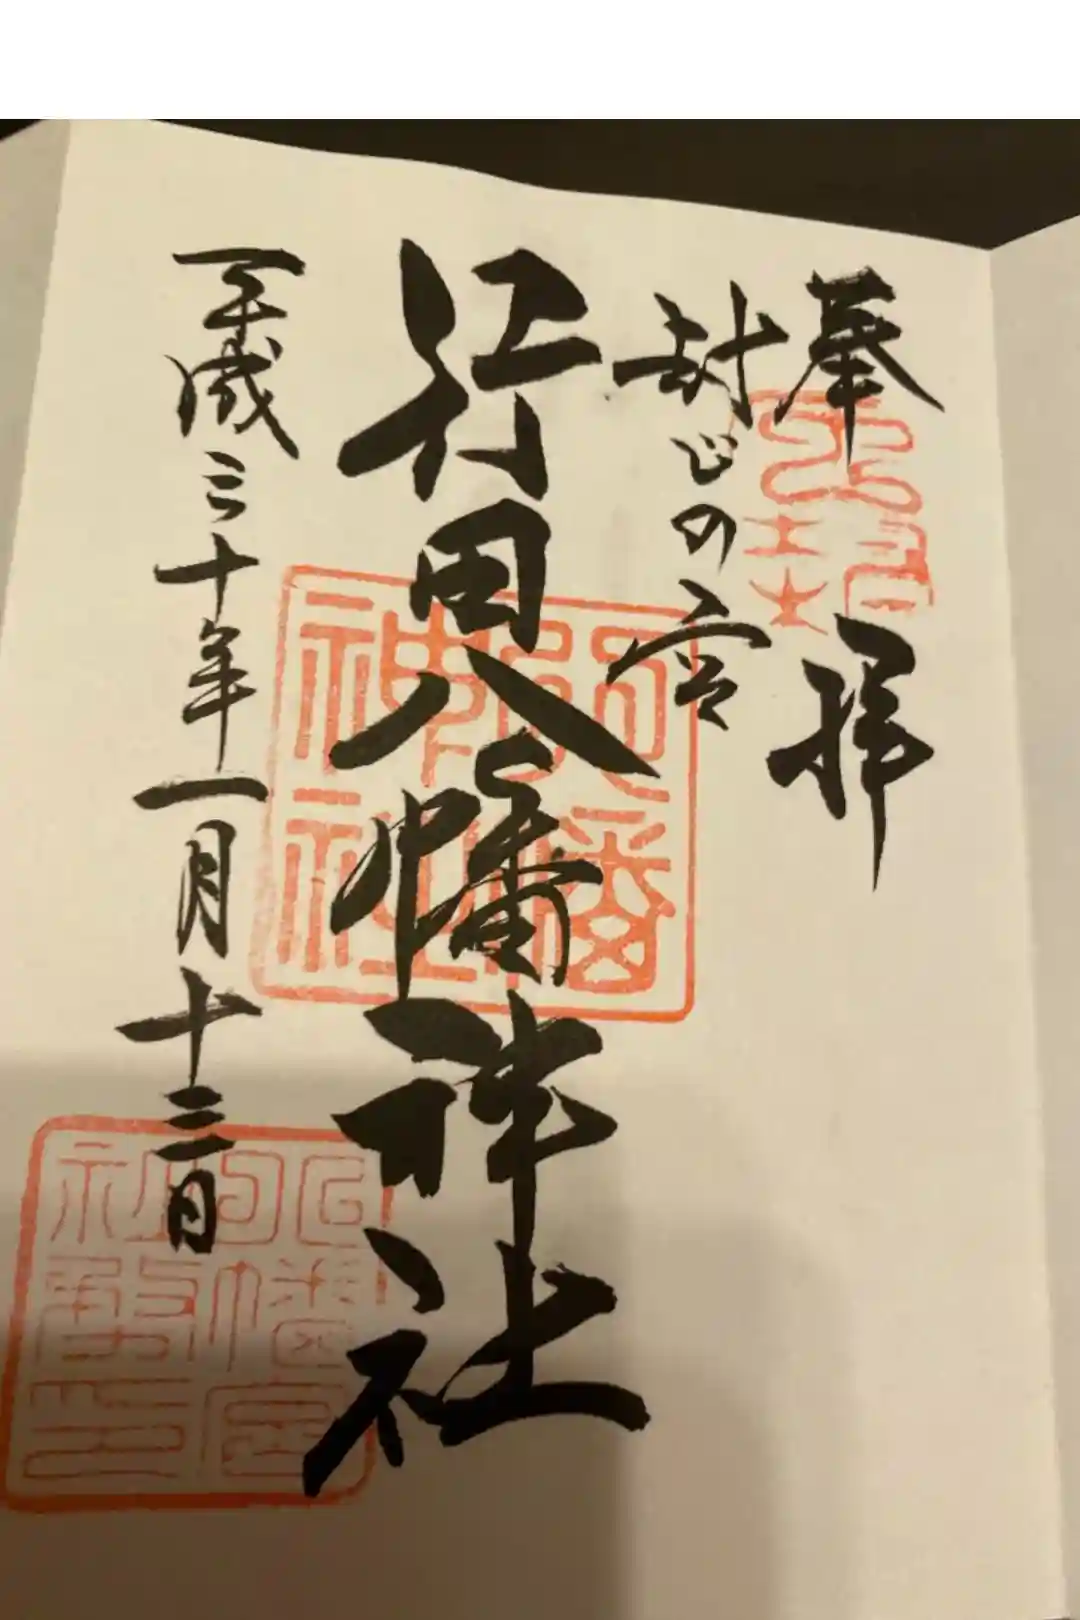 奉拝
封じの宮
行田八幡神社
平成三十年一月十三日
八幡神社